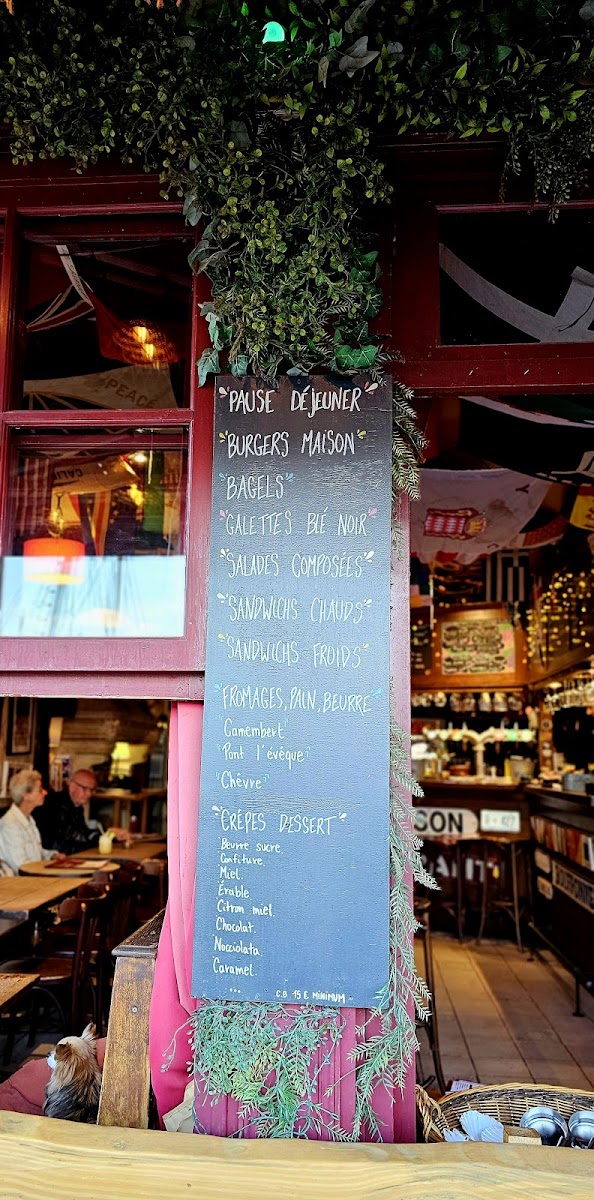 PEACE
PAUSE DÉJEUNER
BURGERS MAISON
BAGELS
GALETTES BLÉ NOIR
SALADES COMPOSÉES
SANDWICHS CHAUDS
SANDWICHS FROIDS
FROMAGES, PAIN, BEURRE
"Camembert"
"Pont l'évêque"
"Chèvre"
CRÊPES DESSERT
Beurre sucre.
Confiture.
Miel.
Érable
Citron miel.
Chocolat.
Nocciolata.
Caramel.
...
C.B 15 € MINIMUM -
SON